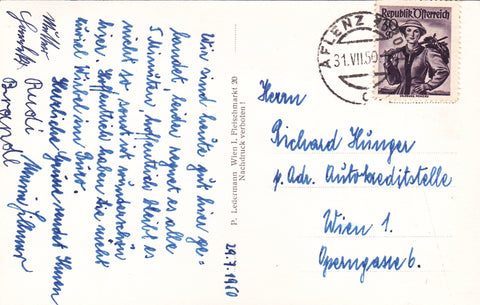 Wir sind heute gut hier ge=
landet, leider regnet es alle
5 Minuten, hoffentlich bleibt es
nicht so, sonst ist wunderschön
hier. Hoffentlich haben Sie nicht
zuviel Wirbel im Büro.
Herzliche Grüsse sendet Ihnen
Mutter
Rudi
Brandl
29.7.1950
P. Ledermann Wien I, Fleischmarkt 20
Nachdruck verboten!
AFLENZ
31.VII.50
Republik Österreich
Herrn
Richard Hunger
p. Adr. Autokreditstelle
Wien 1.
Operngasse 6.